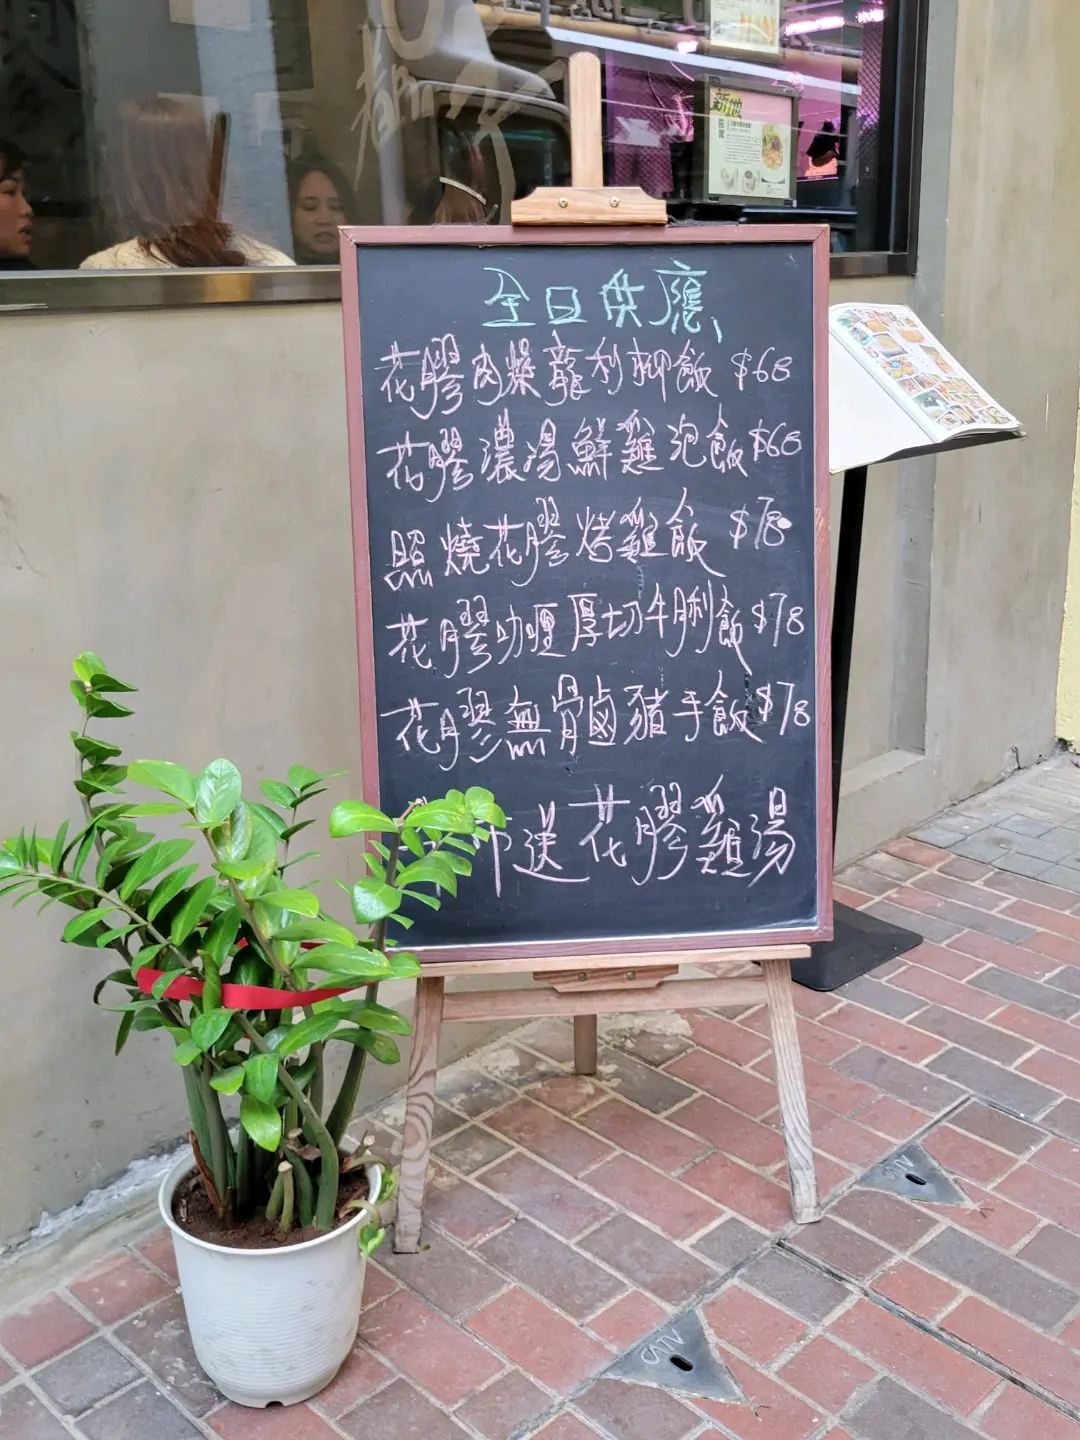 新地
全日供應
花膠肉燥龍利柳飯 $68
花膠濃湯鮮雞泡飯 $68
照燒花膠烤雞飯 $78
花膠咖喱厚切牛脷飯 $78
花膠無骨鹵豬手飯 $78
即送花膠雞湯
CATV
CATV